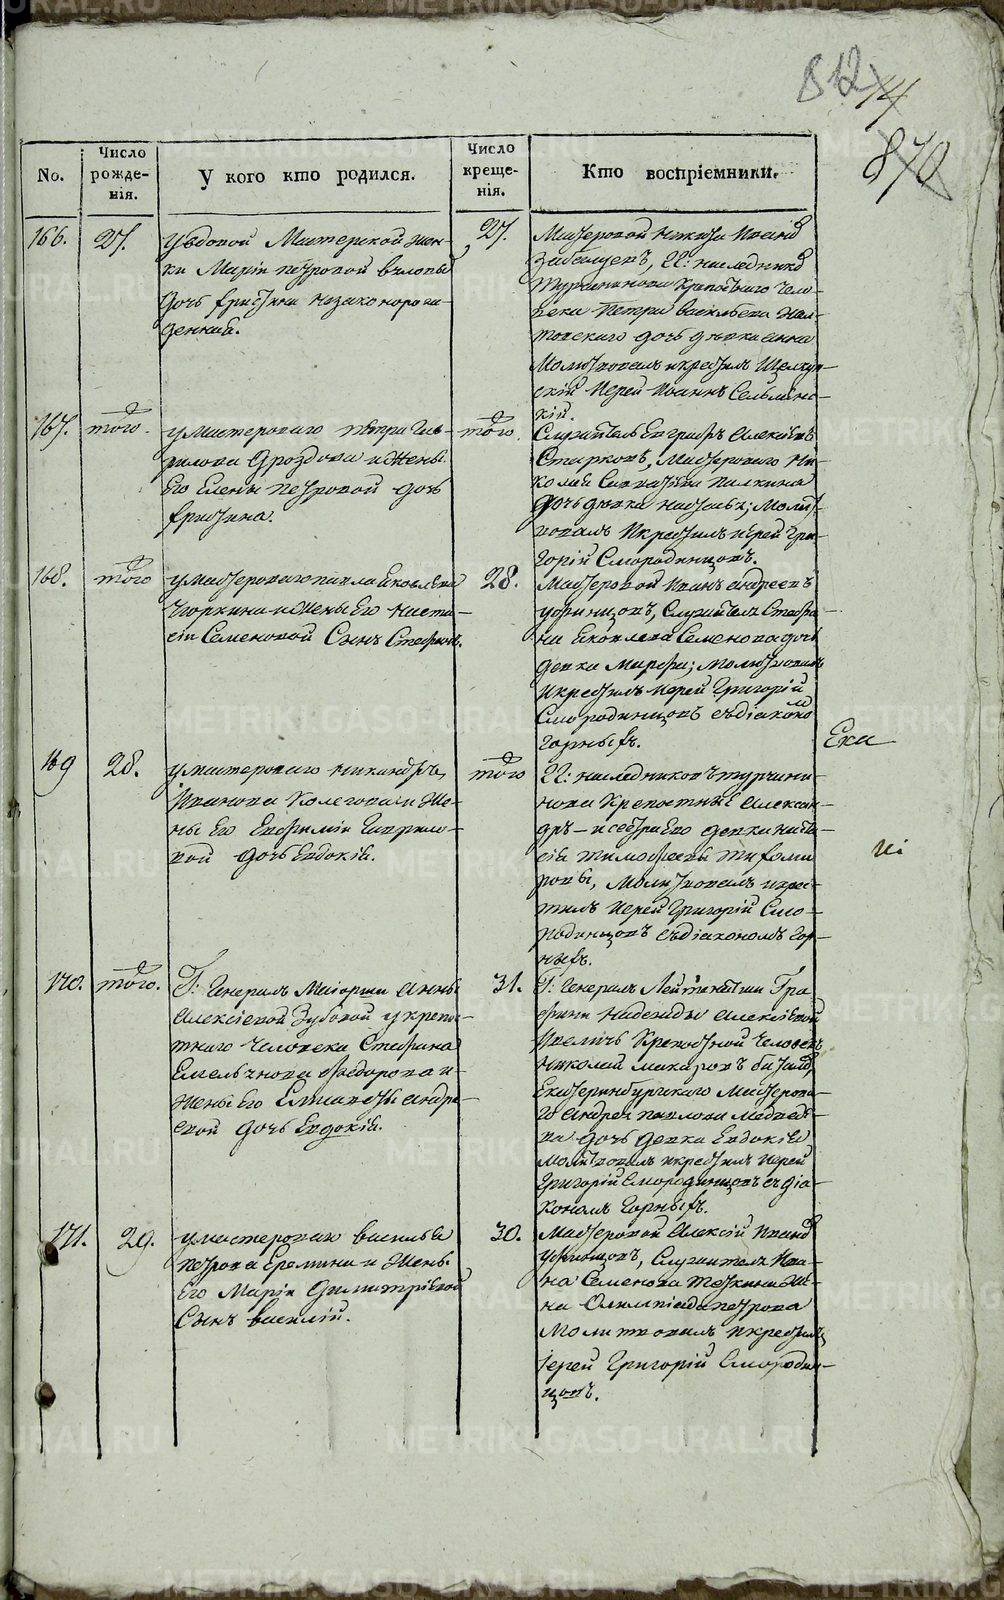 812
14
870
No.
Число рожденія.
У кого кто родился.
Число крещенія.
Кто воспріемники.
166.
27.
Увдовой Мастерской жен-
ки Маріи Петровой
дочь Христина незаконорож-
денная.
27.
Мастеровой Никита Ивановъ
наследниковъ
Турчанинова крепостнаго чело-
века Петра Васильева
дочь девка Анна
Молитвовалъ и крестилъ
Іерей Іоаннъ Сельменс-
кій.
167.
того.
у мастероваго Петра Гав-
рилова Дроздова и жены
Его Елены Петровой дочь
Христина.
того.
Служитель Евграфъ Алексеевъ
Старковъ, Мастероваго Ни-
колая Пилкина
дочь девка Настасья; Молит-
вовалъ и крестилъ іерей Гри-
горій Смородинцовъ.
168.
того
у мастероваго Павла Яковлева
и жены Его Наста-
сіи Семеновой Сынъ Стефанъ.
28.
Мастеровой Иванъ Андреевъ
Уфинцовъ, Служителя Стефа-
на Яковлева Семенова дочь
девка Марфа; молитвовалъ
и крестилъ Іерей Григорій
Смородинцовъ съ діакономъ
Горныхъ.
169
28.
у мастероваго Никандра
Иванова Колегова и же-
ны Его Евфиміи Гаврило-
вой дочь Евдокія.
того
наследниковъ Турчани-
нова Крепостные Алексан-
дръ и сестра Его девка Наста-
сія Тимофеевы Тихоми-
ровы, Молитвовалъ и крес-
тилъ Іерей Григорій Смо-
родинцовъ съ діакономъ Гор-
ныхъ.
170.
того.
Г: Генералъ Маіорши Анны
Алексіевой Зубовой у крепос-
тнаго человека Стефана
Емельянова Федорова и
жены Его Андре-
евой дочь Евдокія.
31.
Г: Генералъ Лейтенантши Гра-
фини Надежды Алексіевой
Ивеличъ Крепостной человекъ
Николай Макаровъ
Екатеринбургскаго Мастерова-
го Андрея Павлова Медведе-
ва дочь девка Евдокія
молитвовалъ и крестилъ Іерей
Григорій Смородинцовъ съ діа-
кономъ Горныхъ.
171.
29.
у мастероваго Василья
Петрова Еремина и жены
Его Маріи Димитріевой
Сынъ Василій.
30.
Мастеровой Алексій Ивановъ
Уфинцовъ, Служителя Ива-
на Семенова же-
на Олимпіада Петрова
Молитвовалъ и крестилъ
Іерей Григорій Смородин-
цовъ.
Ека
METRIKI.GASO-URAL.RU